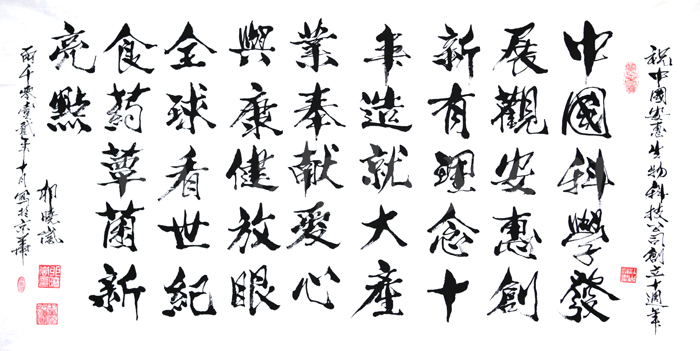 祝中國安惠生物科技公司創立十週年
中國科學發
展觀安惠創
新有理念十
年造就大產
業奉獻愛心
與康健放眼
全球看世紀
食葯蕈菌新
亮點
兩千零壹貳年十月寫於京華
曉嵐